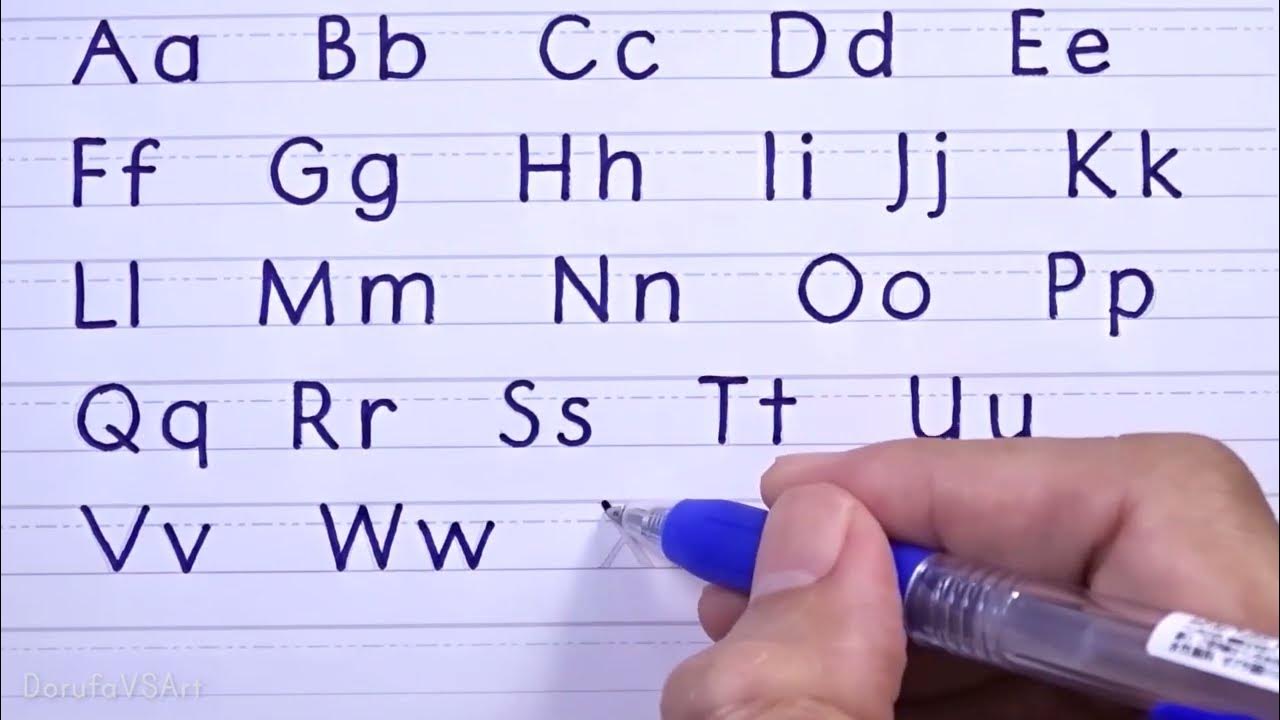 Aa Bb Cc Dd Ee
Ff Gg Hh Ii Jj Kk
Ll Mm Nn Oo Pp
Qq Rr Ss Tt Uu
Vv Ww
DorufaVSArt